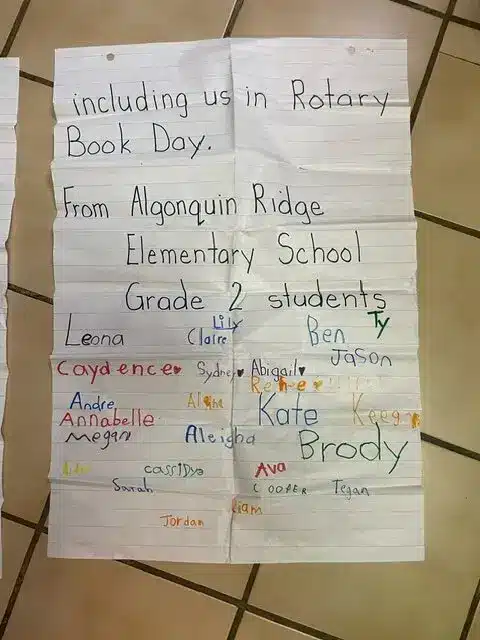 including us in Rotary
Book Day.
From Algonquin Ridge
Elementary School
Grade 2 students
Lily
Ty
Leona Claire Ben
Jason
Caydence♥ Sydney♥ Abigail♥
Renee
Andre Kate Keegan
Annabelle
Megan Aleigha Brody
Cassidy Ava
Sarah COOPER Tegan
liam
Jordan